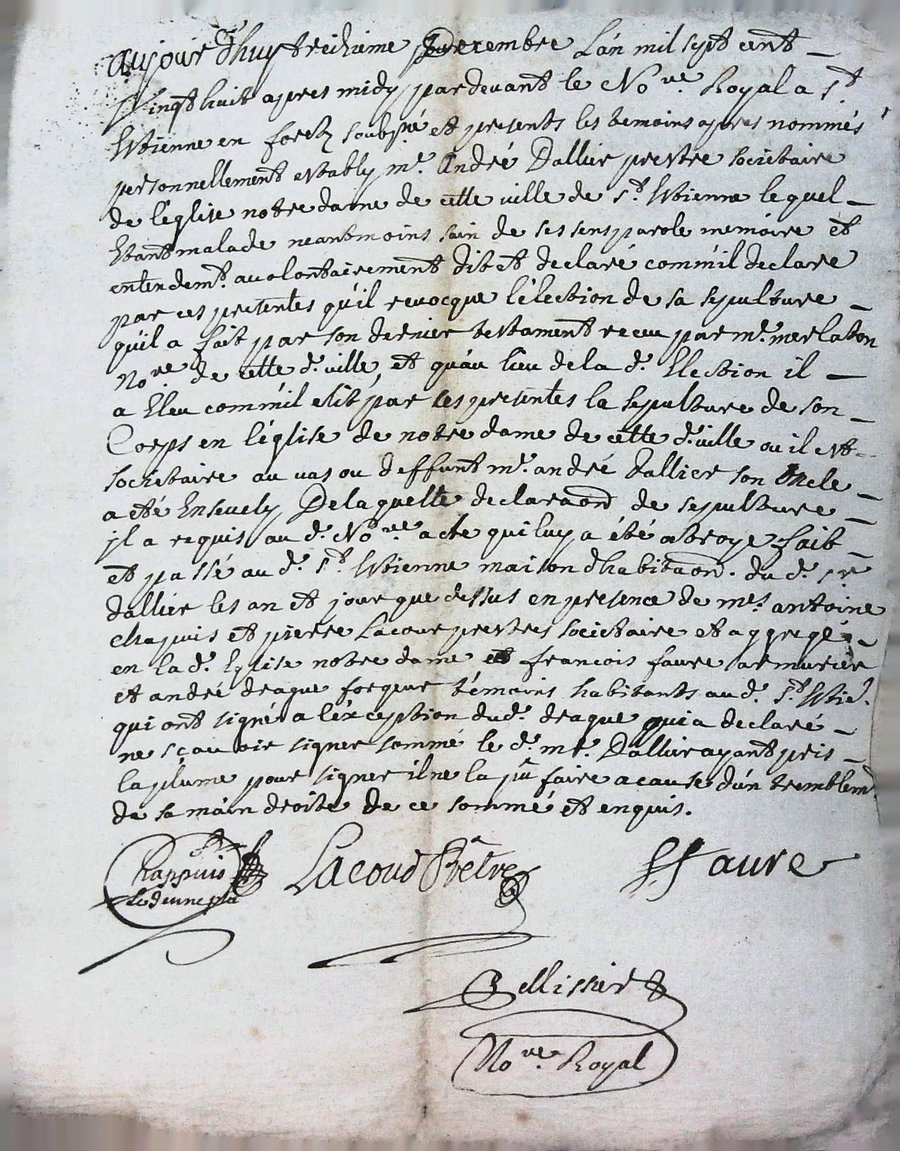 aujourd'huy treiziême Decembre L'an mil sept cent
vingt huit apres midy pardevant le No.re Royal a S.t
Etienne en forest soubsné et presents les temoins apres nommés
personnellement estably m.r André Dallier prestre societaire
de l'eglise notre dame de cette ville de S.t Etienne lequel
Etant malade neantmoins sain de ses sens parole memoire et
entendem.t a volontairement dit et declaré comm'il declare
par ces presentes qu'il revocque l'election de sa sepulture
quil a fait par son dernier testament receu par m.r merlaton
No.re de cette d. ville, et qu'au lieu de la d. Election il
a Eleu comm'il elit par ces presentes la sepulture de son
Corps en l'église de notre dame de cette d. ville ou il est
societaire au vas ou deffunt m.r andré Dallier son oncle
a été Ensevely De laquelle declaraon de sepulture
il a requis au d. No.re acte qui luy a été octroyé fait
et passé au d. S.t Etienne maison d'habitaon. du d. s.r
dallier les an et jour que dessus en presence de m.es antoine
chapuis et pierre Lacour prestres societaire et aggregé
en la d. Eglise notre dame et françois faure armurier
et andré drague forgeur témoins habitants au d. S.t Etie.
qui ont signé a l'éxception du d. drague qui a declaré
ne sçavoir signer sommé le d. m.r Dallier ayant pris
la plume pour signer il ne la pu faire a cause d'un tremblem.t
de sa main droite de ce sommé et enquis.
Chappuis Lacour Pêtre F faure
Pellissier
No.re Royal